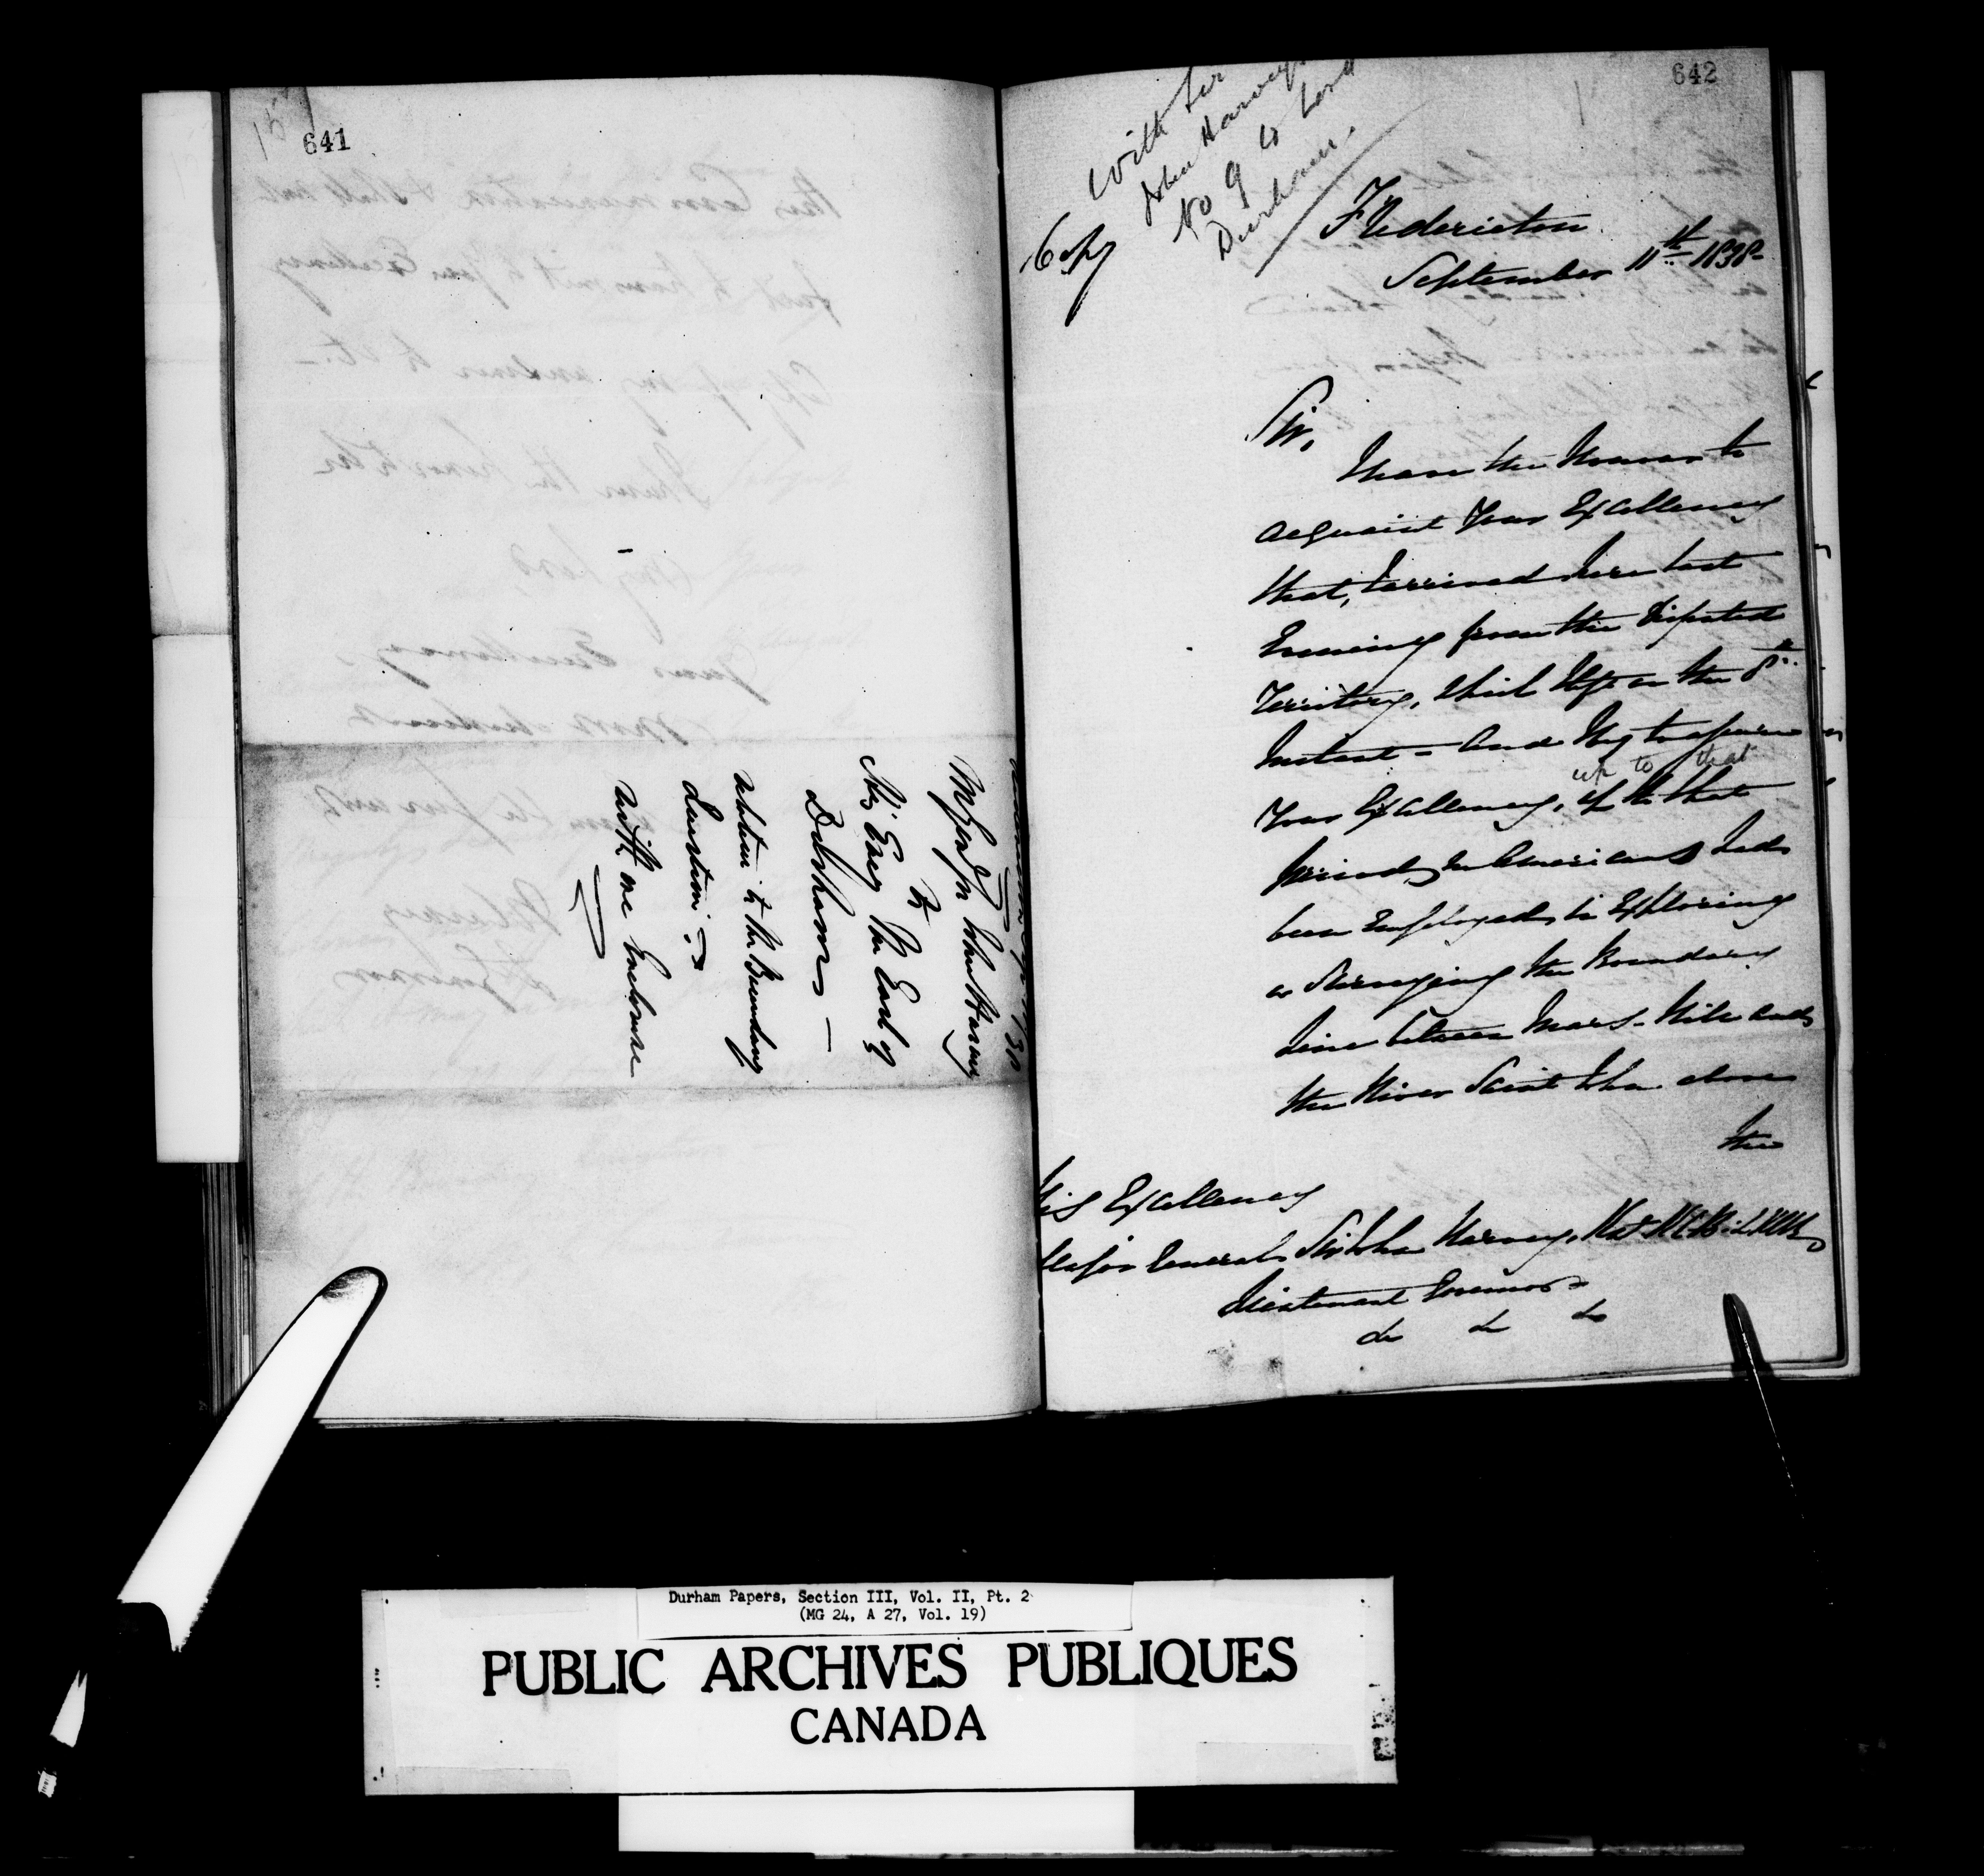 641
M. Genl Sir John Harvey
to
His Excy The Earl of
Durham —
relative to the Boundary
Question
with one Enclosure
642
With Sir
John Harvey's
No 9 to Lord
Durham.
Copy
Fredericton
September 11th 1838
Sir,
I have the Honour to
acquaint Your Excellency
that, I arrived here last
Evening from the Disputed
Territory, which I left on the 8th
Instant - and I beg to assure
up to that
Your Excellency, up to that
period, no Americans had
been employed in Exploring
or Surveying the Boundary
Line between Mars-Hill and
the River Saint John above
the
His Excellency
Major General Sir John Harvey, KCB
Lieutenant Governor
&c &c &c
Durham Papers, Section III, Vol. II, Pt. 2
(MG 24, A 27, Vol. 19)
PUBLIC ARCHIVES PUBLIQUES
CANADA